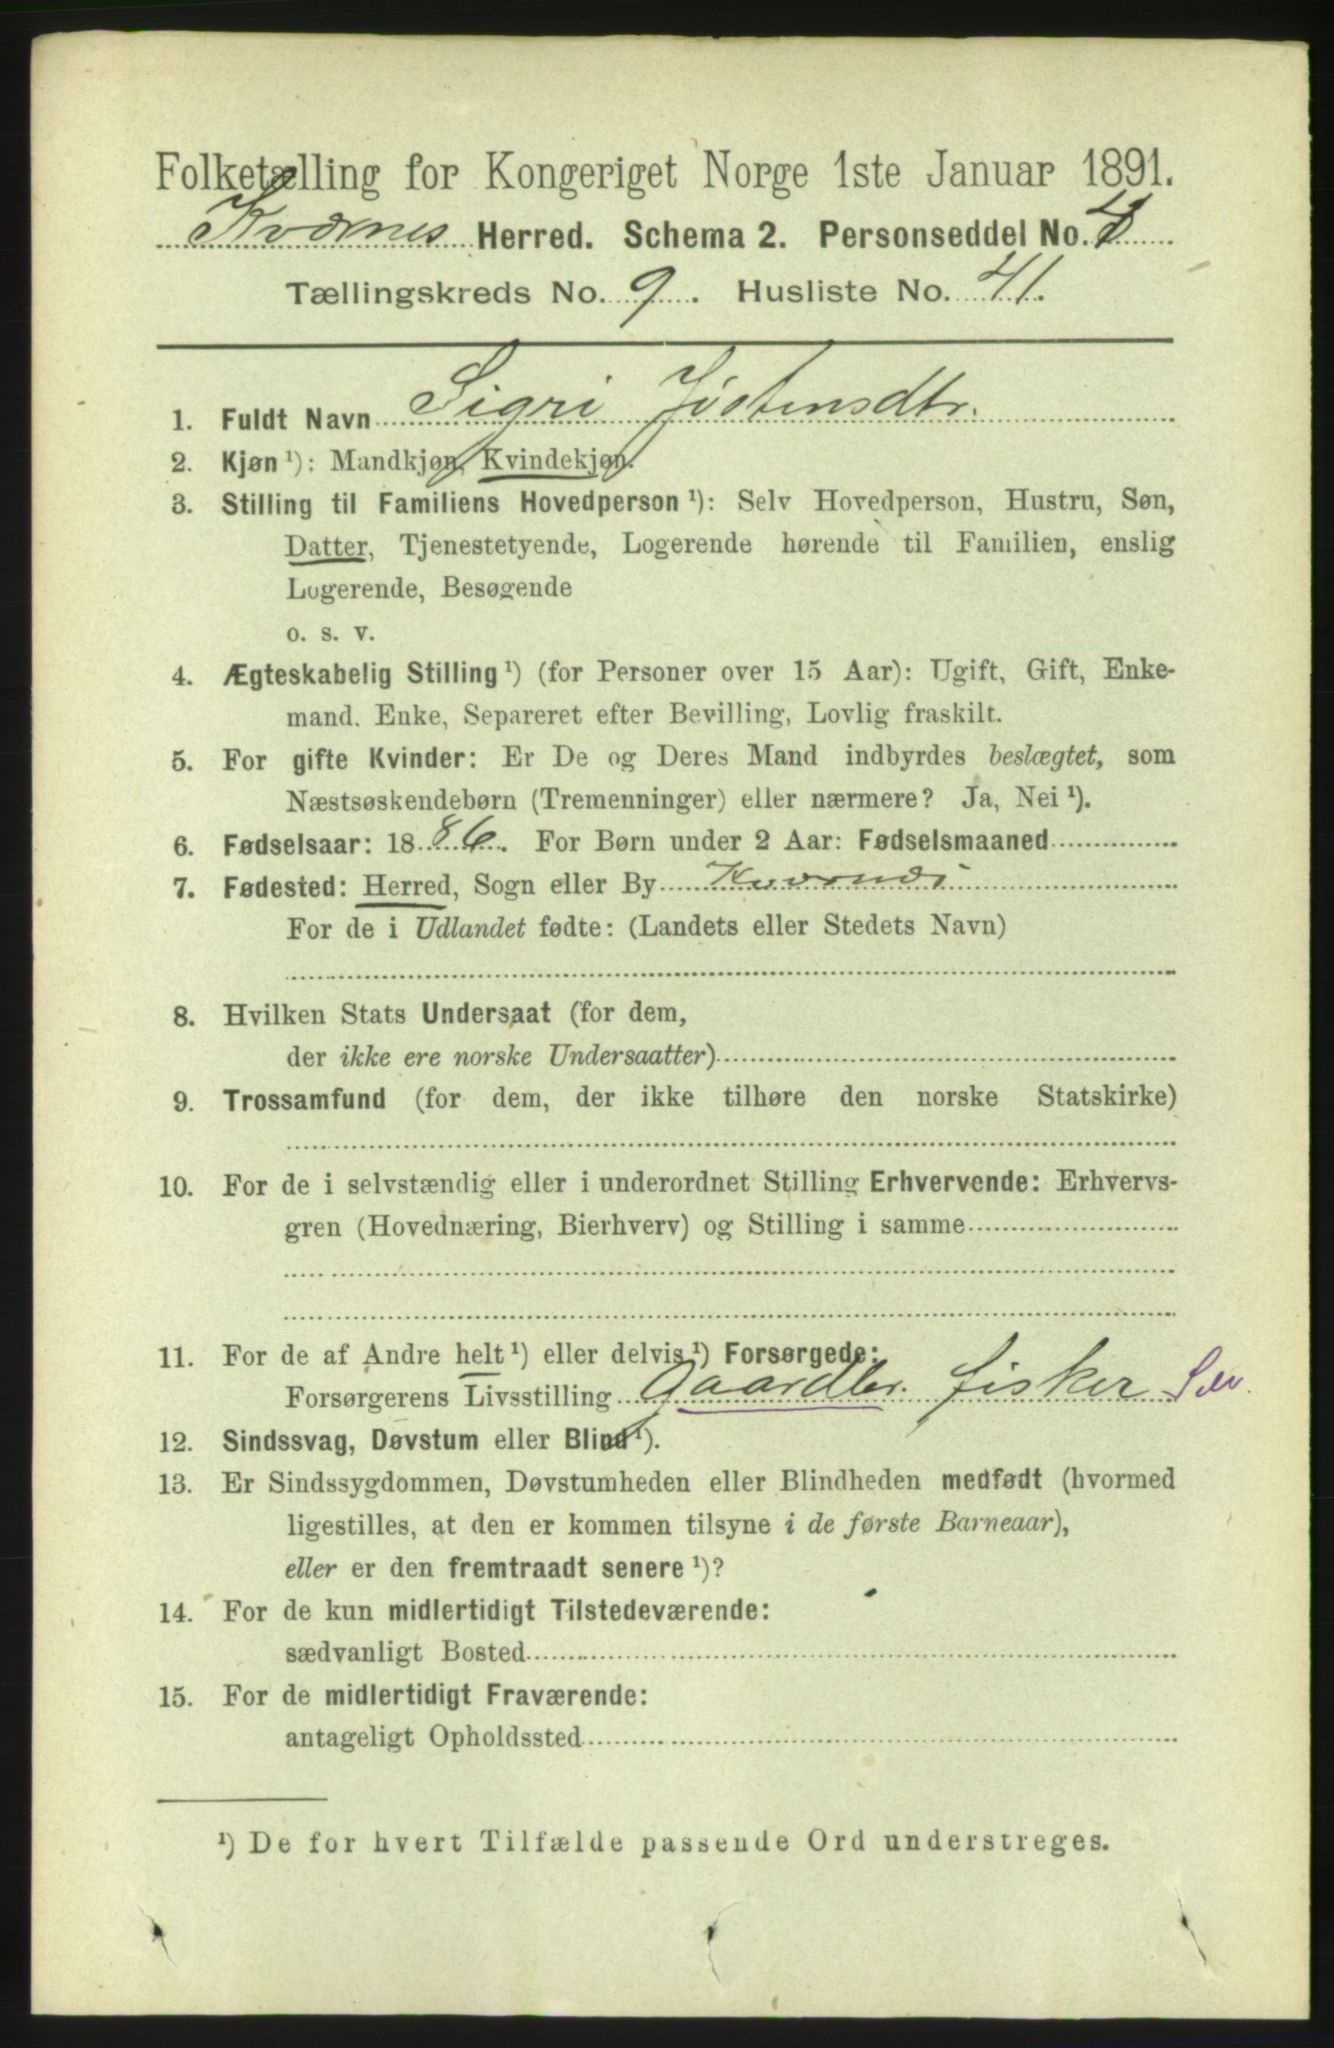 Folketælling for Kongeriget Norge 1ste Januar 1891.
Kværnes Herred. Schema 2. Personseddel No.
Tællingskreds No. 9. Husliste No. 41.
1. Fuldt Navn Sigri Jøstensdtr.
2. Kjøn ¹): Mandkjøn, Kvindekjøn.
3. Stilling til Familiens Hovedperson ¹): Selv Hovedperson, Hustru, Søn,
Datter, Tjenestetyende, Logerende hørende til Familien, enslig
Logerende, Besøgende
o. s. v.
4. Ægteskabelig Stilling ¹) (for Personer over 15 Aar): Ugift, Gift, Enke-
mand. Enke, Separeret efter Bevilling, Lovlig fraskilt.
5. For gifte Kvinder: Er De og Deres Mand indbyrdes beslægtet, som
Næstsøskendebørn (Tremenninger) eller nærmere? Ja, Nei ¹).
6. Fødselsaar: 1886. For Børn under 2 Aar: Fødselsmaaned
7. Fødested: Herred, Sogn eller By Kværnæs
For de i Udlandet fødte: (Landets eller Stedets Navn)
8. Hvilken Stats Undersaat (for dem,
der ikke ere norske Undersaatter)
9. Trossamfund (for dem, der ikke tilhøre den norske Statskirke)
10. For de i selvstændig eller i underordnet Stilling Erhvervende: Erhvervs-
gren (Hovednæring, Bierhverv) og Stilling i samme
11. For de af Andre helt ¹) eller delvis ¹) Forsørgede:
Forsørgerens Livsstilling Gaardbr. fisker Selv.
12. Sindssvag, Døvstum eller Blind ¹).
13. Er Sindssygdommen, Døvstumheden eller Blindheden medfødt (hvormed
ligestilles, at den er kommen tilsyne i de første Barneaar),
eller er den fremtraadt senere ¹)?
14. For de kun midlertidigt Tilstedeværende:
sædvanligt Bosted
15. For de midlertidigt Fraværende:
antageligt Opholdssted
¹) De for hvert Tilfælde passende Ord understreges.